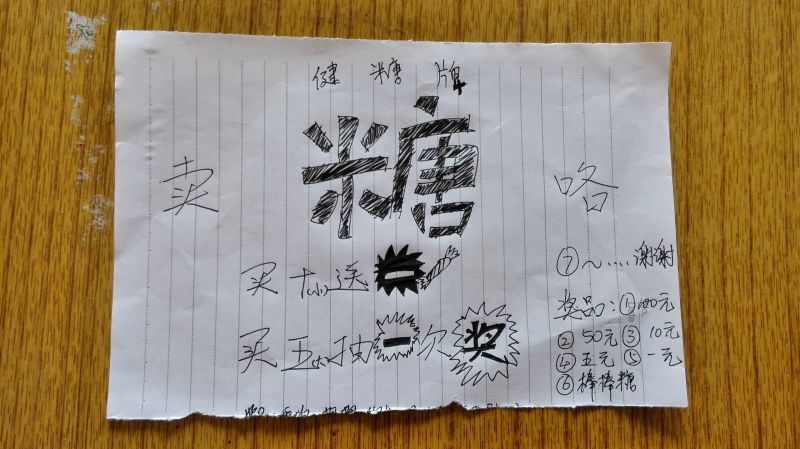 健糖牌
卖糖咯
买十(小)送一
买五(大)抽一次奖
⑦~....谢谢
奖品:①100元
②50元③10元
④五元⑤一元
⑥棒棒糖